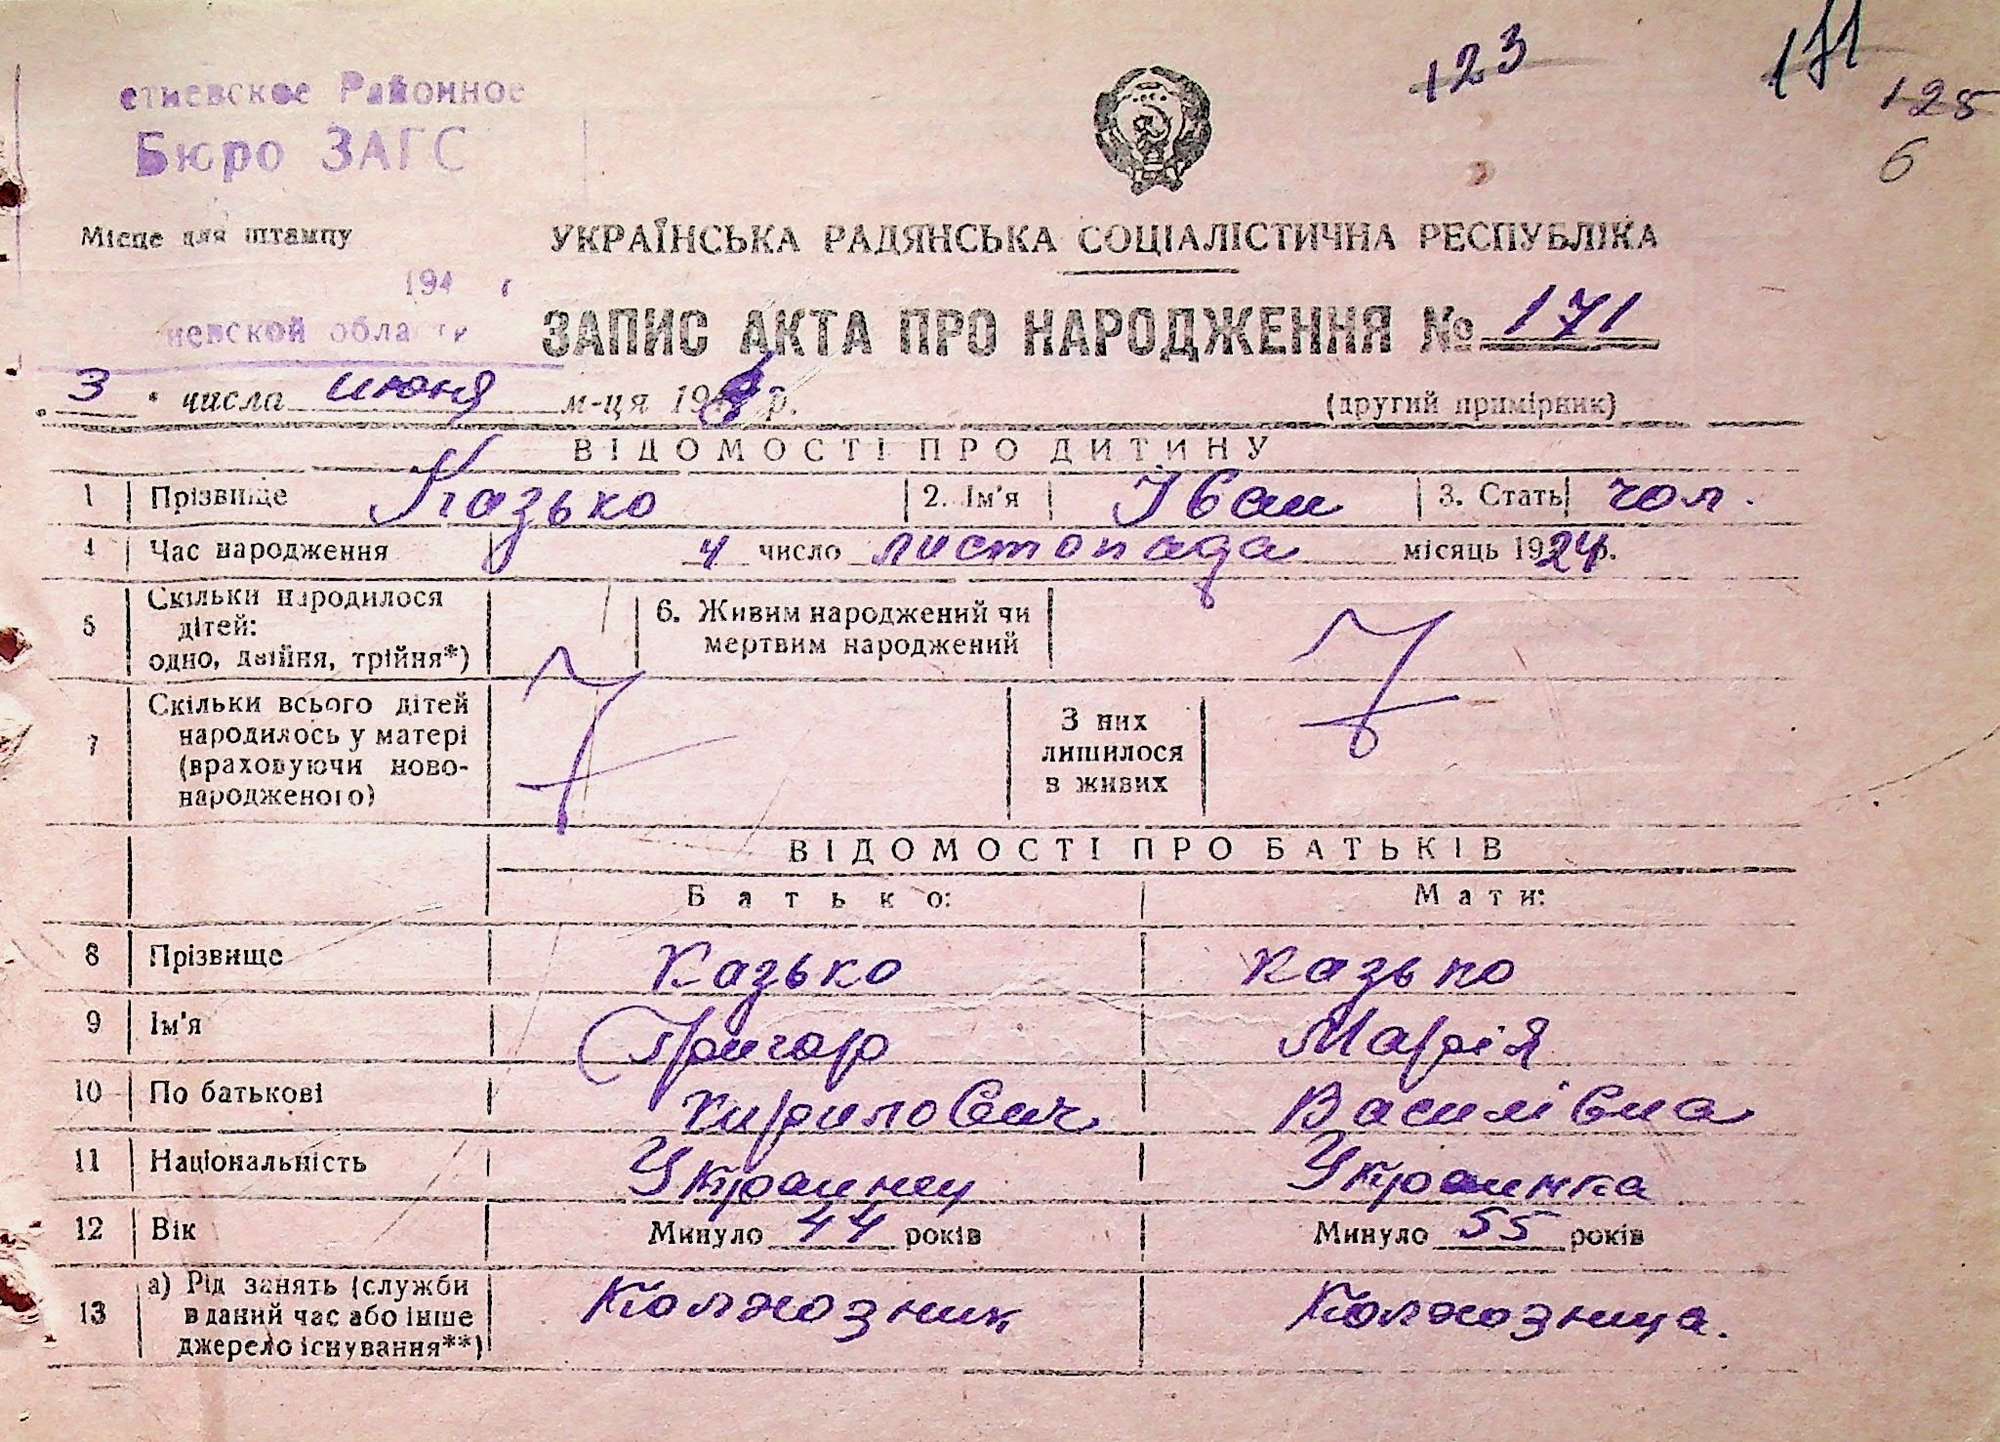 123
171
125
6
етиевское Районное
Бюро ЗАГС
Місце для штампу
УКРАЇНСЬКА РАДЯНСЬКА СОЦІАЛІСТИЧНА РЕСПУБЛІКА
194 г
иевской области
ЗАПИС АКТА ПРО НАРОДЖЕННЯ № 171
„ 3 " числа июня м-ця 194 р.
(другий примірник)
ВІДОМОСТІ ПРО ДИТИНУ
1 Прізвище Казько 2. Ім'я Іван 3. Стать чол.
4 Час народження 4 число листопада місяць 1924 р.
5 Скільки народилося дітей: одно, двійня, трійня*)
6. Живим народжений чи мертвим народжений
7 Скільки всього дітей народилось у матері (враховуючи новонародженого)
З них лишилося в живих
ВІДОМОСТІ ПРО БАТЬКІВ
Батько: Мати:
8 Прізвище Казько Казько
9 Ім'я Григор Марія
10 По батькові Кирилович Василівна
11 Національність Украинец Украинка
12 Вік Минуло 44 років Минуло 55 років
13 а) Рід занять (служби в даний час або інше джерело існування**) Колхозник Колхозница.